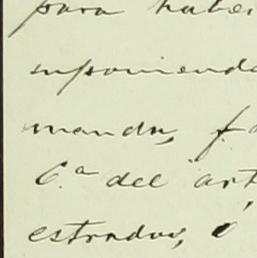 para haber
imponiendo
manda, f
6.ª del art
estrados, ó